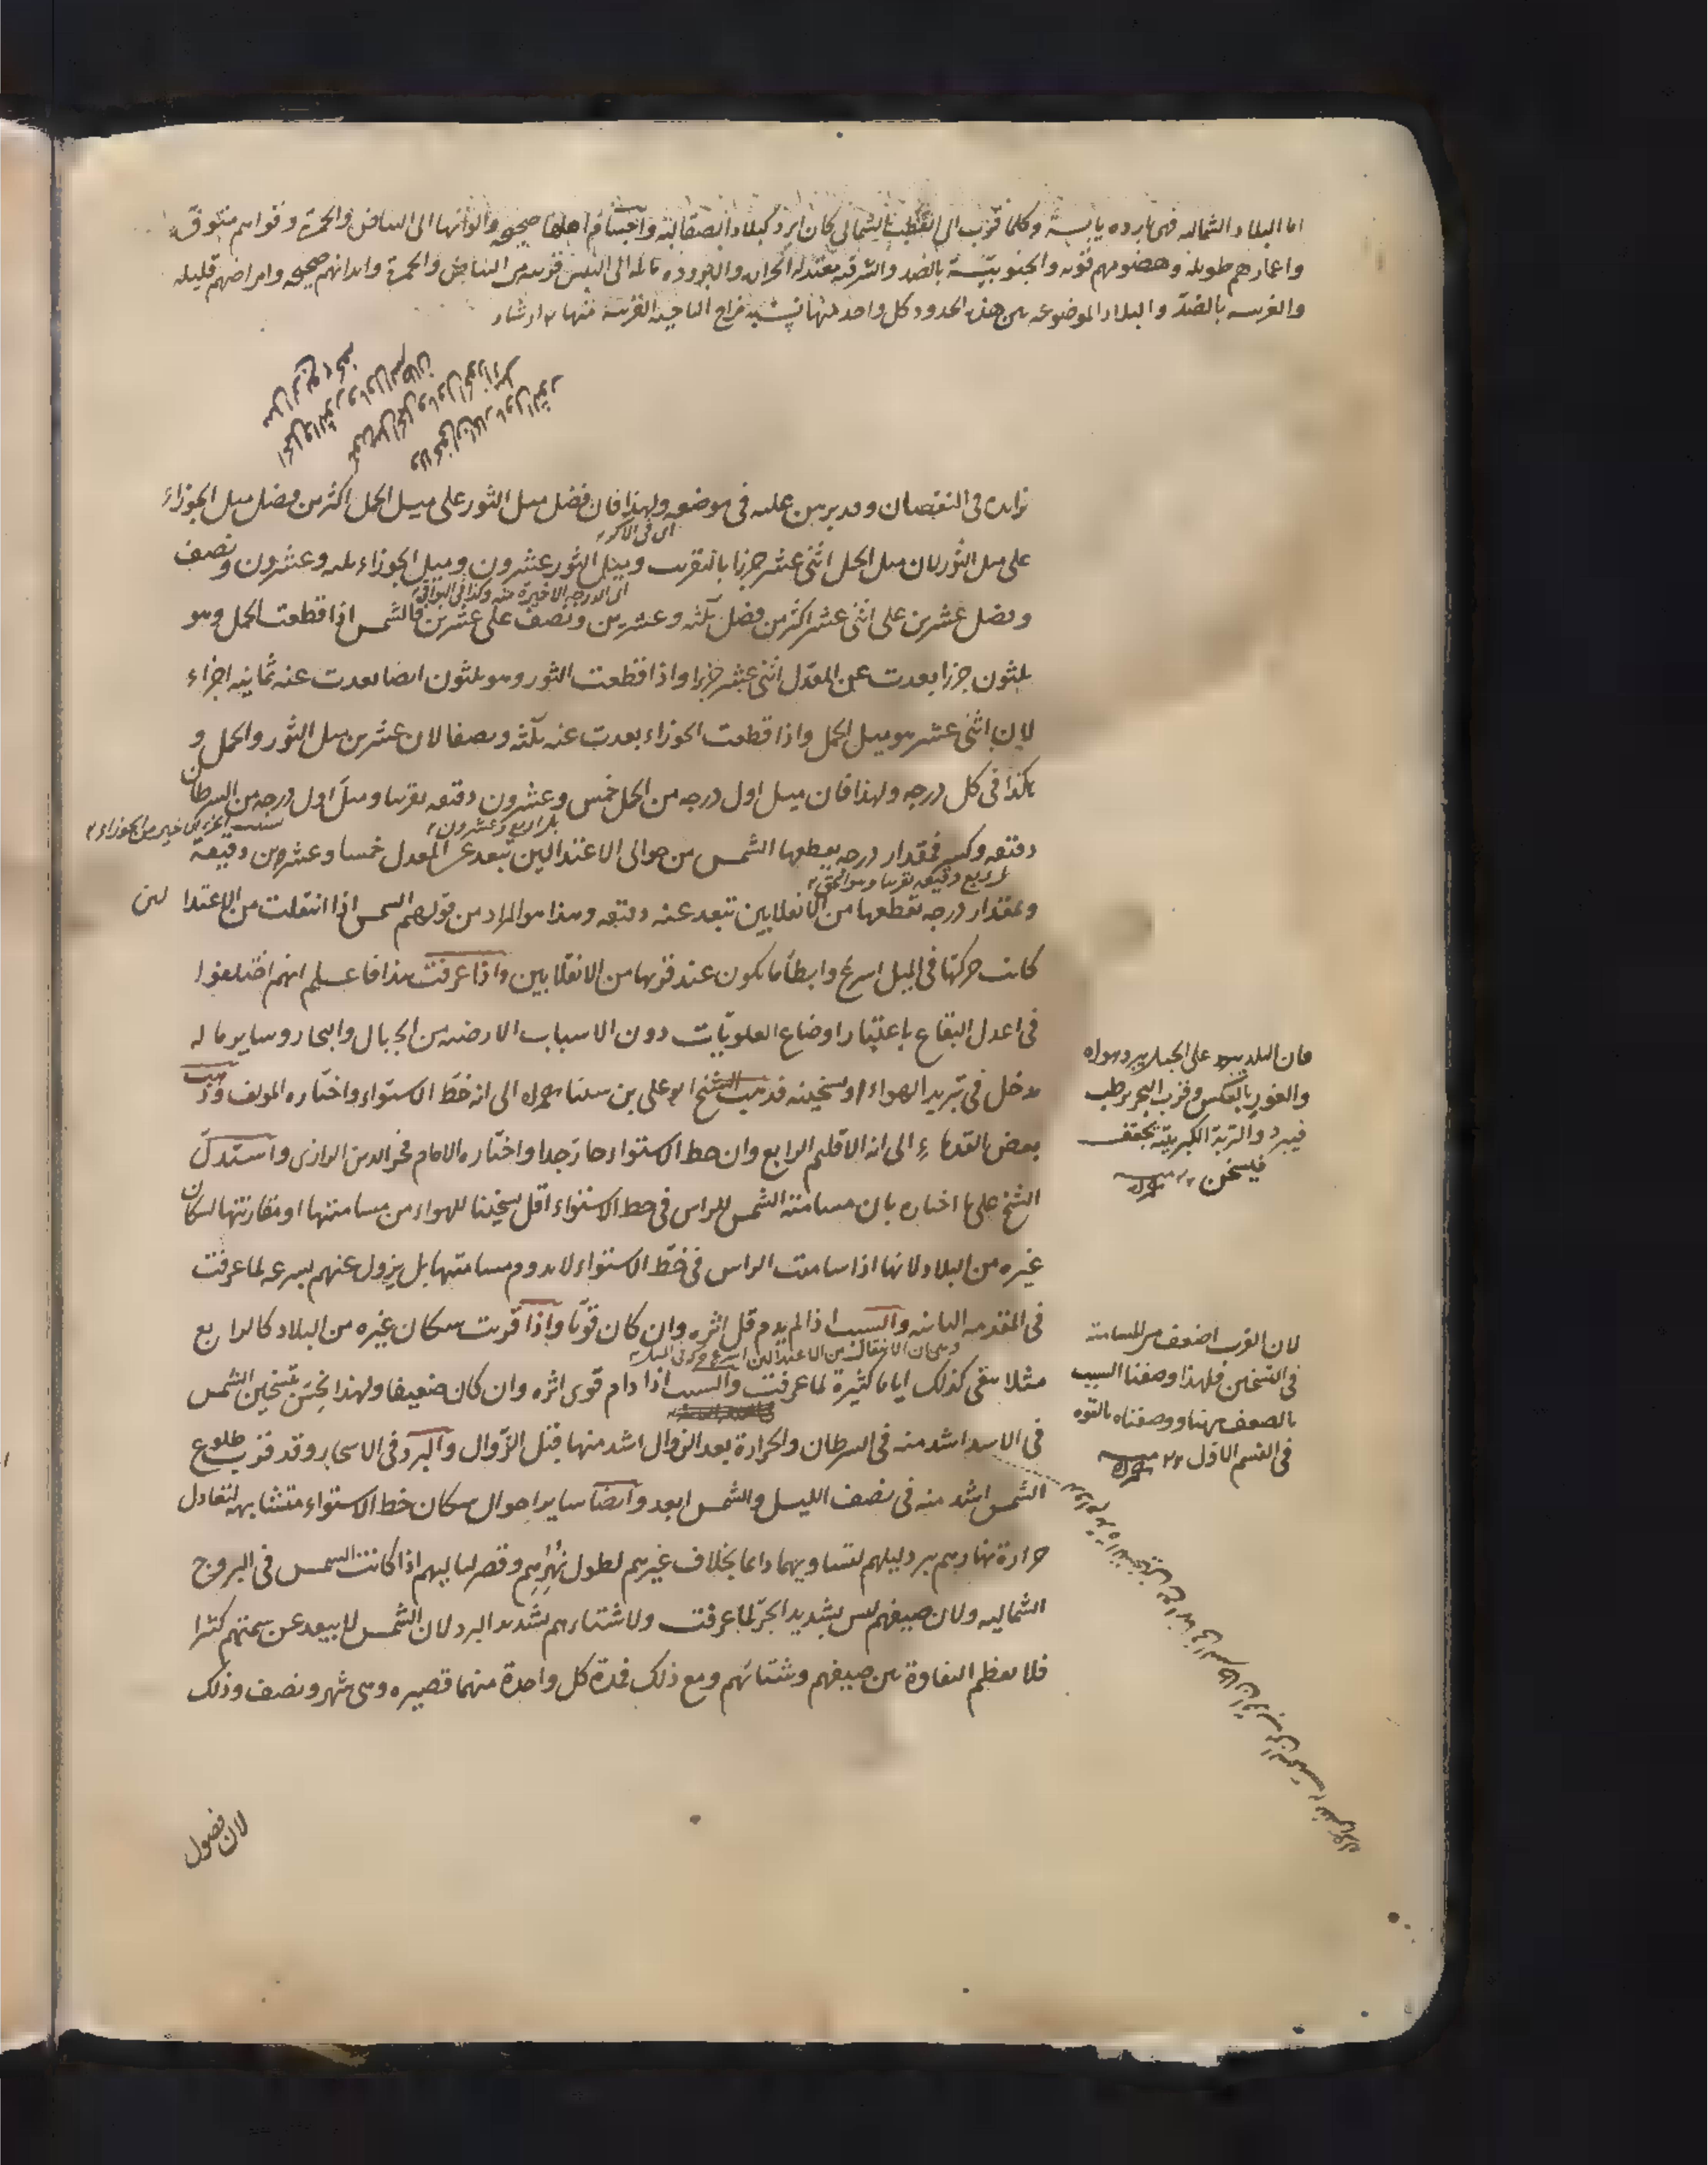 اما البلاد الشماليه فهى بارده يابسة وكلما قرب الى القطب الشمالى كان ابرد كبلاد الصقالبة واجسام اهلها صحيحه والوانها الى البياض والحمرة وقواهم متوفرة
واعمارهم طويله وهضومهم قويه والجنوبية بالضد والشرقيه معتدله الحر والبروده مائله الى اليبس قريبه من البياض والحمرة وابدانهم صحيحه وامراضهم قليله
والغربيه بالضد والبلاد الموضوعه بين هذه الحدود كل واحد منها يشبه مزاج الناحية القريبة منها
زايدة فى النقصان وقد برهن عليه فى موضعه ولهذا فان فضل ميل الثور على ميل الحمل اكثر من فضل ميل الجوزاء
اى فى الاكر
على ميل الثور لان ميل الحمل اثنى عشر جزءا بالتقريب وميل الثور عشرون وميل الجوزاء ثلثه وعشرون ونصف
اى الدرجه الاخيرة منه وكذا فى البواقى
وفضل عشرين على اثنى عشر اكثر من فضل ثلثه وعشرين ونصف على عشرين فالشمس اذا قطعت الحمل وهو
ثلثون جزءا بعدت عن المعدل اثنى عشر جزءا واذا قطعت الثور وهو ثلثون ايضا بعدت عنه ثمانيه اجزاء
لان اثنى عشر هو ميل الحمل واذا قطعت الجوزاء بعدت عنه ثلثه ونصفا لان عشرين ميل الثور والحمل و
هكذا فى كل درجه ولهذا فان ميل اول درجه من الحمل خمس وعشرون دقيقه تقريبا وميل اول درجه من السرطان
بل اربع وعشرون
دقيقه وكسر فمقدار درجه يقطعها الشمس من حوالى الاعتدالين تبعد عن المعدل خمسا وعشرين دقيقة
بل ربع دقيقه تقريبا وهو الحق
وبمقدار درجه تقطعها من الانقلابين تبعد عنه دقيقه وهذا هو المراد من قولهم الشمس اذا انتقلت من الاعتدالين
كانت حركتها فى الميل اسرع وابطأ ما يكون عند قربها من الانقلابين واذا عرفت هذا فاعلم انهم اختلفوا
فى اعدل البقاع باعتبار اوضاع العلويات دون الاسباب الارضيه من الجبال والبحار وساير ما له
مدخل فى تبريد الهواء او تسخينه فذهب الشيخ ابو على بن سينا رحمه الله الى انه خط الاستواء واختاره المولف وذهب
بعض القدماء الى انه الاقليم الرابع وان خط الاستواء حار جدا واختاره الامام فخر الدين الرازى واستدل
الشيخ على ما اختاره بان مسامتة الشمس للراس فى خط الاستواء اقل تسخينا للهواء من مسامتتها او مقاربتها لسكان
غيره من البلاد لانها اذا سامتت الراس فى خط الاستواء لا يدوم مسامتتها بل يزول عنهم بسرعه لما عرفت
فى المقدمه الثانيه والسبب اذا لم يدم قل اثره وان كان قويا واذا قربت سكان غيره من البلاد كالرابع
وهى ان الانتقال من الاعتدالين اسرع حركه فى الميل
مثلا تبقى كذلك اياما كثيرة لما عرفت والسبب اذا دام قوى اثره وان كان ضعيفا ولهذا يحس بتسخين الشمس
فى الاسد اشد منه فى السرطان والحرارة بعد الزوال اشد منها قبل الزوال والبرد فى الاسحار وقد قرب طلوع
الشمس اشد منه فى نصف الليل والشمس ابعد وايضا ساير احوال سكان خط الاستواء متشابهه لتعادل
حرارة نهارهم برد ليلهم لتساويهما دائما بخلاف غيرهم لطول نهرهم وقصر لياليهم اذا كانت الشمس فى البروج
الشماليه ولان صيفهم ليس بشديد الحر لما عرفت ولا شتاءهم بشديد البرد لان الشمس لا يبعد عن سمتهم كثيرا
فلا يعظم التفاوة بين صيفهم وشتائهم ومع ذلك فمدة كل واحدة منهما قصيره وهى شهر ونصف وذلك
فان البلد على الجبل يبرد هواه
والغور بالعكس وقرب البحر يرطب
فيبرد والتربة الكبريتيه تجفف
فيسخن
لان القرب اضعف من المسامته
فى التسخين فلهذا وصفنا السبب
بالضعف هنا ووصفناه بالقوه
فى القسم الاول
لان فضول